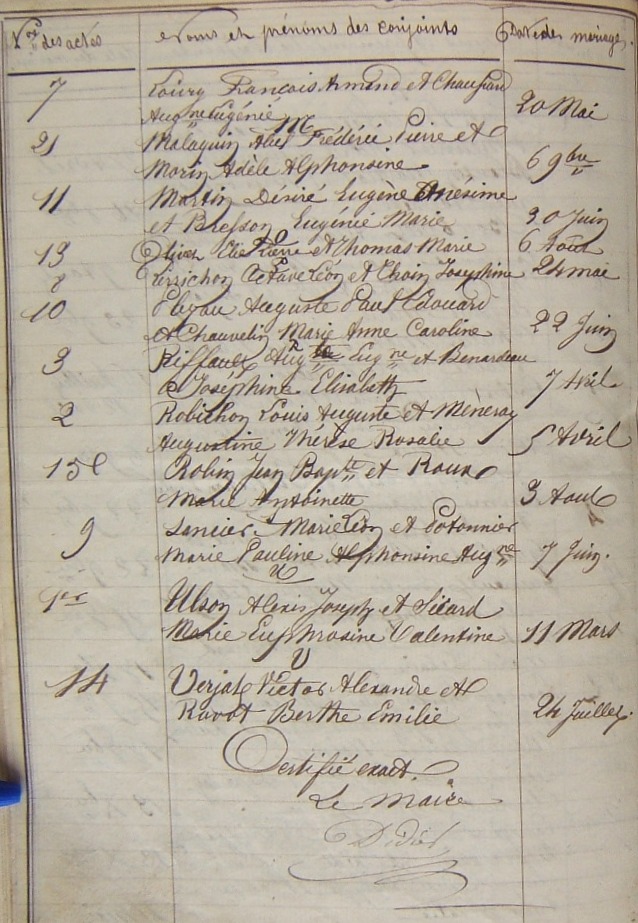 Nos des actes Noms et prénoms des conjoints Date des mariages
7 Loury François Armand et Chaussard
Augne Eugénie 20 Mai
M
21 Malaquin Frédéric Pierre et
Morin Adèle Alphonsine 6 9bre
11 Martin Désiré Eugène Onésime
et Bresson Eugénie Marie 30 Juin
O
13 Olivier Pierre et Thomas Marie 6 Août
P
8 Perrichon Octave Léon et Choin Joséphine 24 mai
10 Auguste Paul Edouard
et Chauvelin Marie Anne Caroline 22 Juin
R
3 Riffault Augte Eugne et Benardeau
Joséphine Elisabeth 7 Avril
2 Robichon Louis Auguste et Méneray
Augustine Thérèse Rosalie 5 Avril
15 Robin Jean Bapte et Roux
Marie Antoinette 3 Août
9 Sancier Marie Léon et Potonnier
Marie Pauline Alphonsine Augne 7 Juin.
U
1er Ulson Alexis Joseph et Sicard
Marie Euphrosine Valentine 11 Mars
V
14 Verjat Victor Alexandre et
Ravot Berthe Emilie 24 Juillet.
Certifié exact.
Le Maire